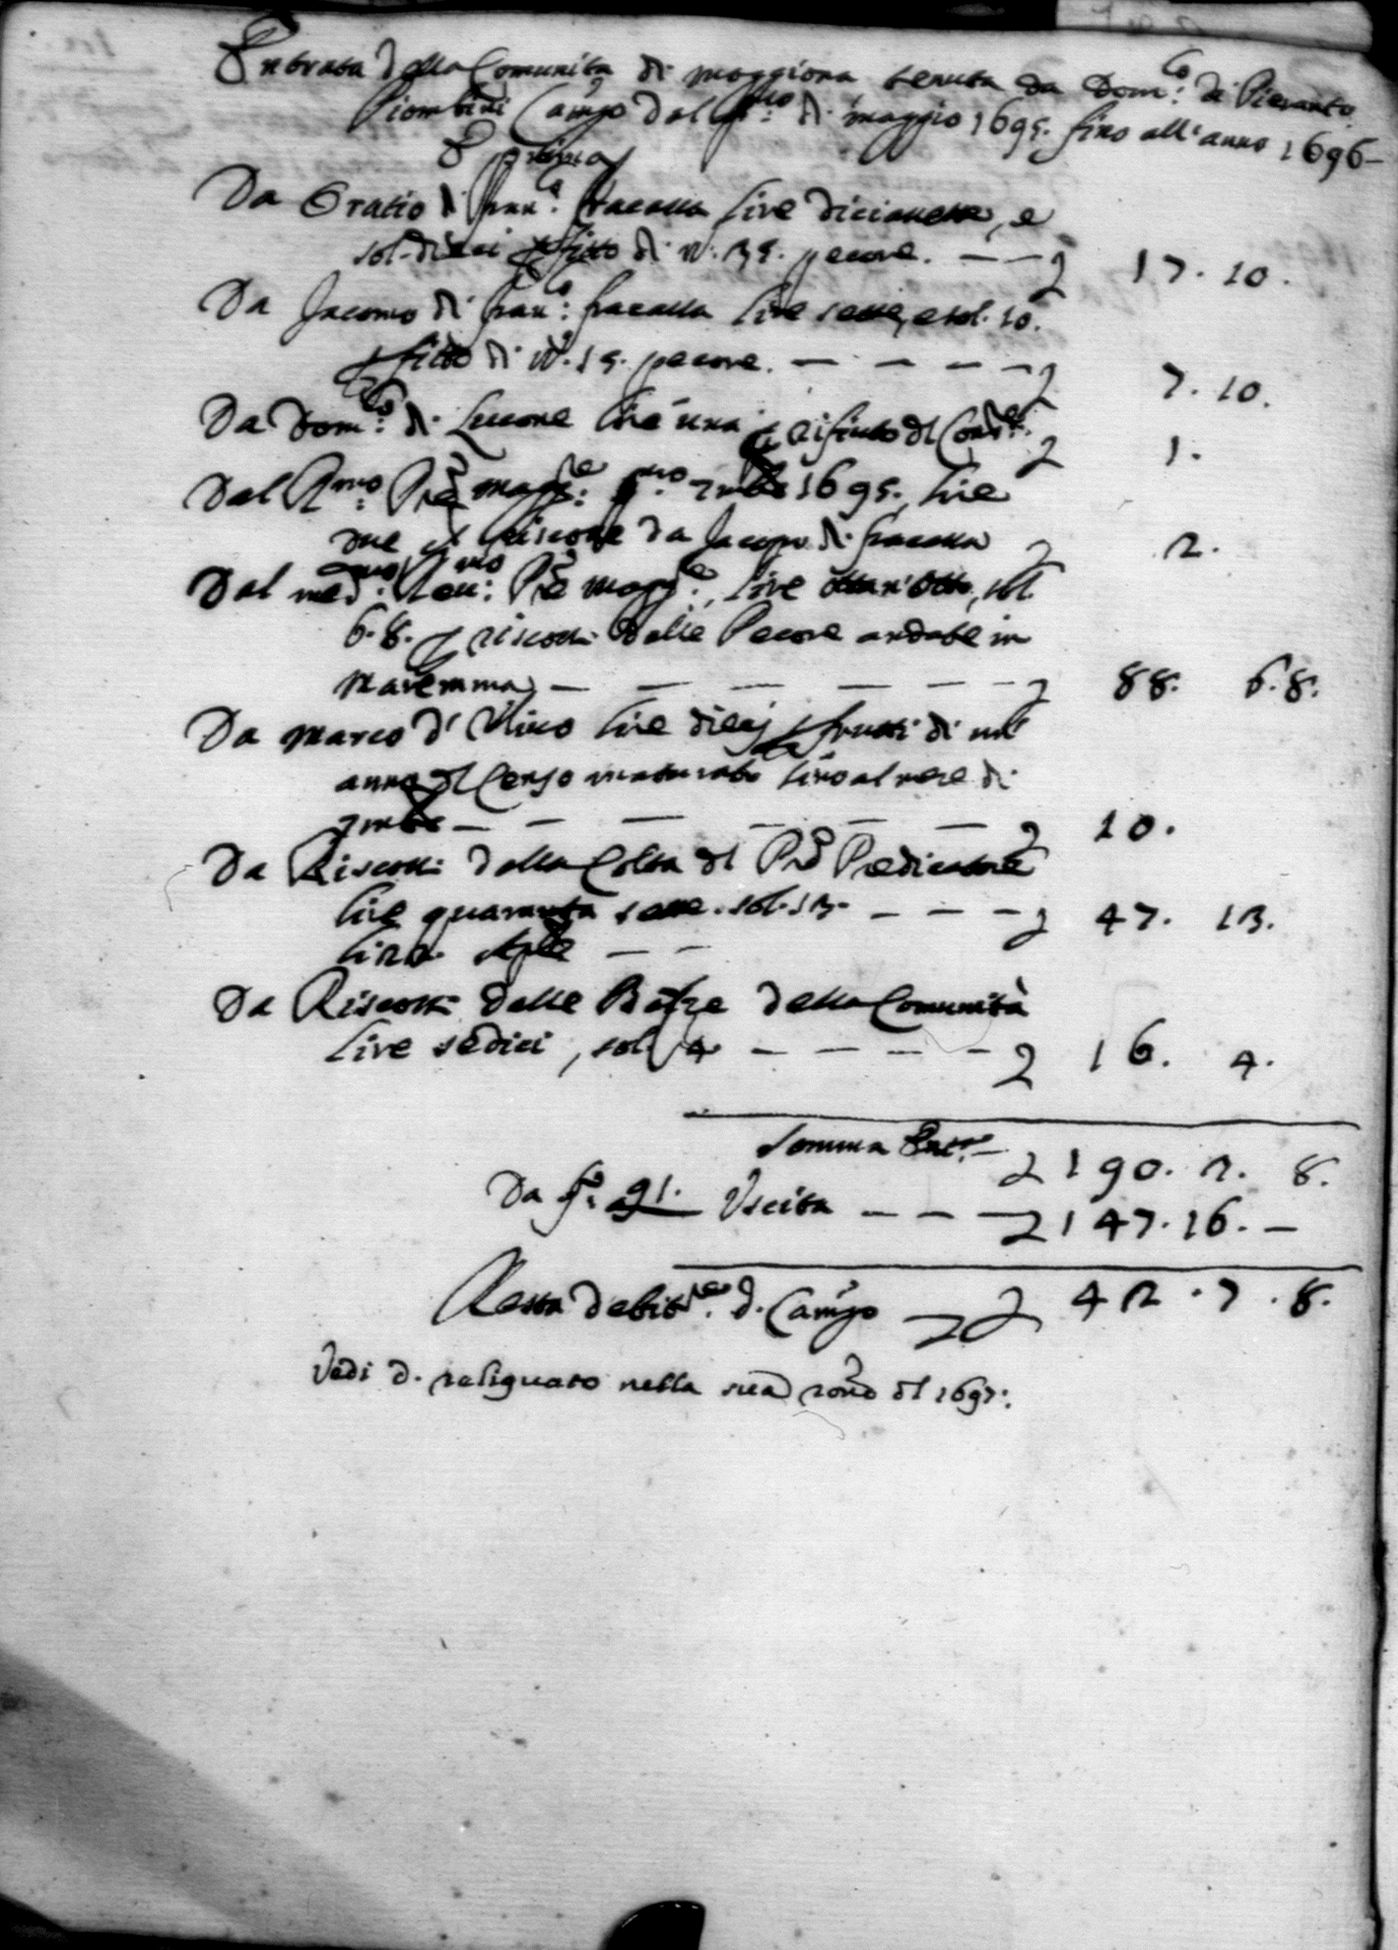 Entrata della Comunità di Moggiona tenuta da Dom:co di Pieranto
Piombini Camgo dal p:mo di maggio 1695. fino all'anno 1696 –
E prima
Da Oratio di fran:co fracassa lire diciasette, e
sol. dieci p fitto di n. 35. pecore. — — £ 17. 10.
Da Jacomo di fran:co fracassa lire sette, e sol. 10.
p fitto di n. 15. pecore. — — — — £ 7. 10.
Da Dom:co di Lucone lire una p rifiuto del Cons:re £ 1.
Dal R:mo Pre Magg:re p:mo 7mbe 1695. lire
due p riscosse da Jacopo di fracassa £ 2.
Dal med:mo Reu:mo Pre Magg:re, lire ottant'otto, sol.
6. 8. p riscossi delle Pecore andate in
Maremma — — — — — £ 88. 6. 8.
Da Marco d' Ulivo lire dieci p frutti di un
anno del Censo maturato sino al mese di
7mbe — — — — — £ 10.
Da Riscossi della Colta del Prê Predicatore
lire quaranta sette. sol. 13. — — — £ 47. 13.
lire — —
Da Riscossi delle Bestie della Comunità
lire sedici, sol. 4 — — — — £ 16. 4.
Somma Entr:a — £ 190. 2. 8.
Da f:o 91. Uscita — — — £ 147. 16. —
Resta debit:re d. Camgo — £ 42. 7. 8.
Vedi d. resiguato nella sua rone del 1697: